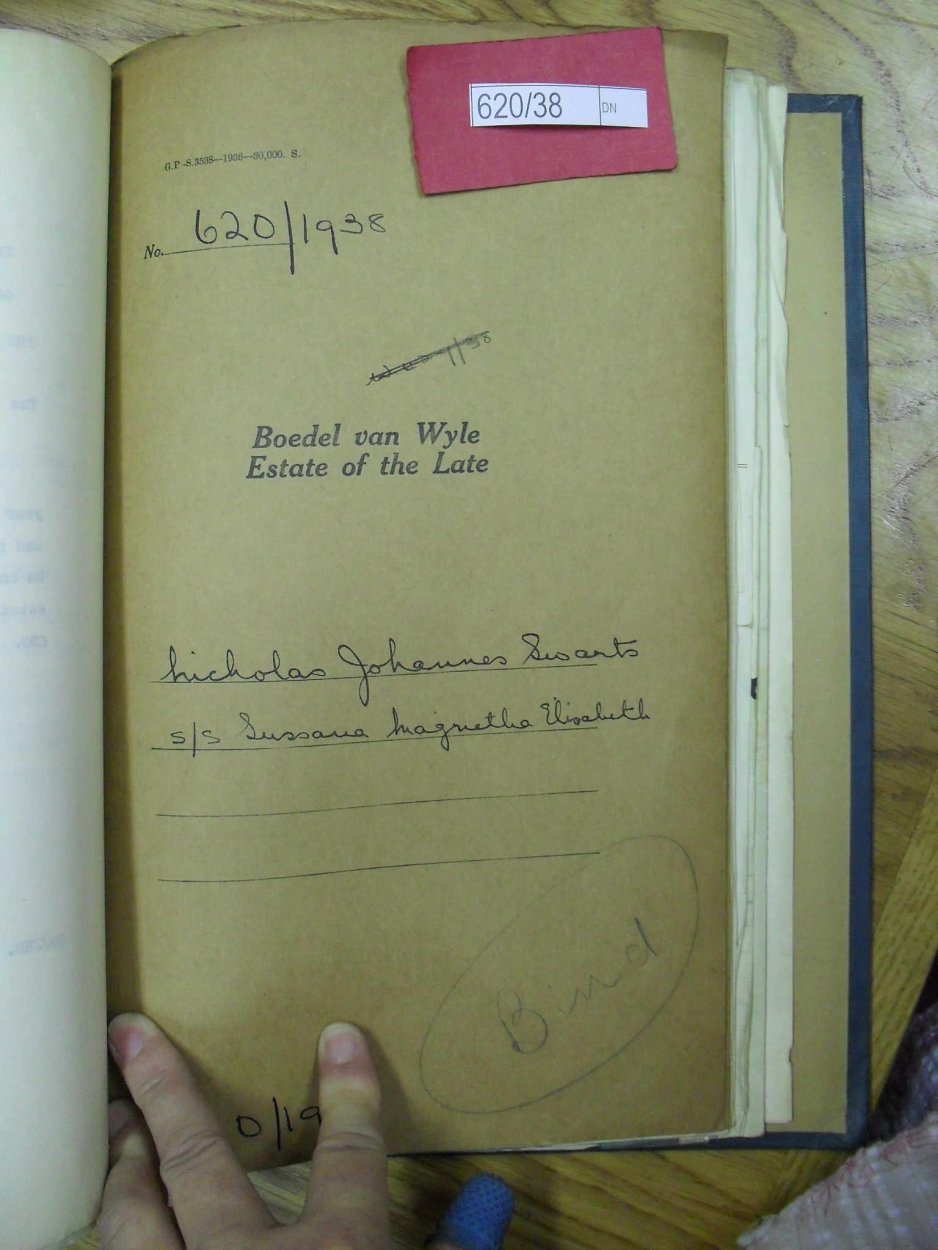 620/38 DN
G.P.-S.3538—1936—30,000. S.
No. 620/1938
1/38
Boedel van Wyle
Estate of the Late
Nicholas Johannes Swarts
s/s Sussana Magrietha Elisabeth
Bind
0/19